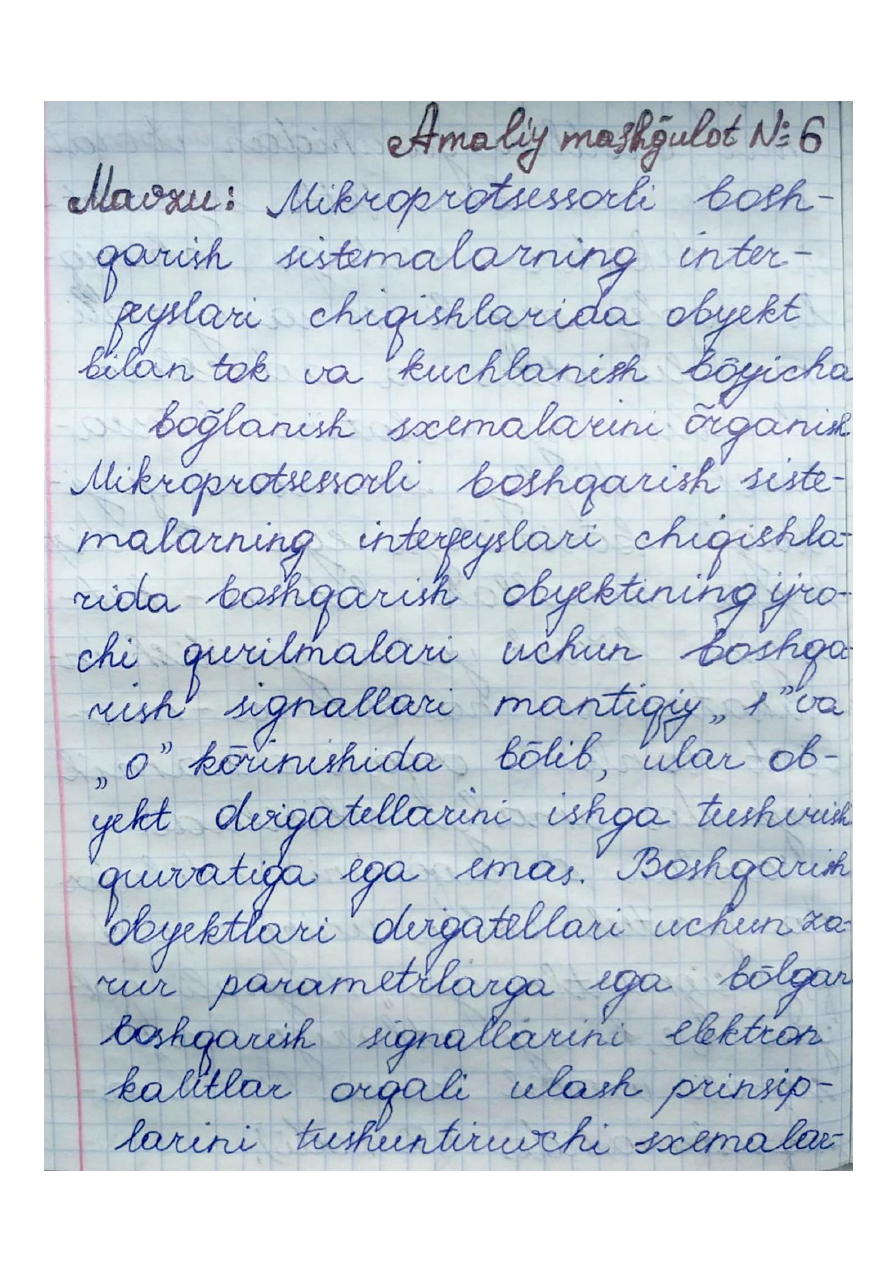 Amaliy mashg̃ulot №: 6
Mavzu: Mikroprotsessorli bosh-
qarish sistemalarning inter-
feyslari chiqishlarida obyekt
bilan tok va kuchlanish bõyicha
bog̃lanish sxemalarini õrganish.
Mikroprotsessorli boshqarish siste-
malarning interfeyslari chiqishla-
rida boshqarish obyektining ijro-
chi qurilmalari uchun boshqa-
rish signallari mantiqiy „1” va
„0” kõrinishida bõlib, ular ob-
yekt dvigatellarini ishga tushirish
quvvatiga ega emas. Boshqarish
obyektlari dvigatellari uchun za-
rur parametrlarga ega bõlgan
boshqarish signallarini elektron
kalitlar orqali ulash prinsip-
larini tushuntiruvchi sxemalar-